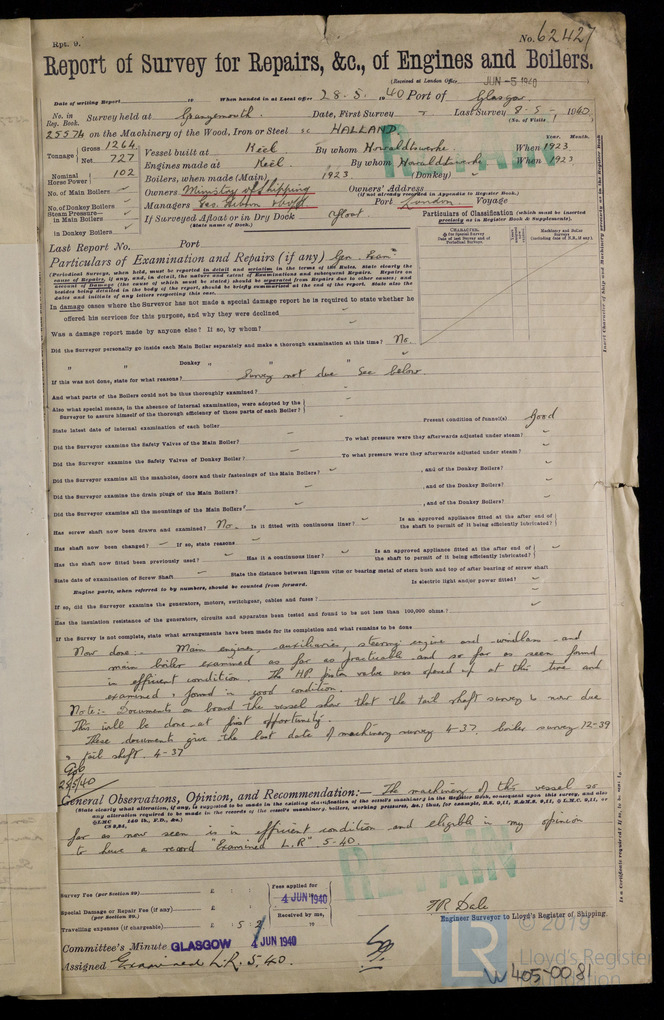 Rpt. 9.
No. 62427
Report of Survey for Repairs, &c., of Engines and Boilers.
(Received at London Office JUN -5 1940
Date of writing Report 19 When handed in at Local Office 28.5.1940 Port of Glasgow
No. in Reg. Book. Survey held at Grangemouth Date, First Survey Last Survey 8-5-1940
(No. of Visits 1
25574 on the Machinery of the Wood, Iron or Steel sc HALLAND
Tonnage Gross 1264 Net 727
Vessel built at Keil By whom Howaldtswerke When 1923
Year. Month.
Engines made at Keil By whom Howaldtswerke When 1923
Nominal Horse Power 102
Boilers, when made (Main) 1923 (Donkey)
No. of Main Boilers
Owners Ministry of Shipping Owners' Address
(if not already recorded in Appendix to Register Book.)
No. of Donkey Boilers
Managers Geo. Gibbon Port London Voyage
Steam Pressure— in Main Boilers
If Surveyed Afloat or in Dry Dock afloat
(State name of Dock.)
in Donkey Boilers
Particulars of Classification (which must be inserted precisely as in Register Book & Supplements).
Last Report No. Port
Particulars of Examination and Repairs (if any) Gen. Exam
(Periodical Surveys, when held, must be reported in detail and seriatim in the terms of the Rules. State clearly the
In damage cases where the Surveyor has not made a special damage report he is required to state whether he
offered his services for this purpose, and why they were declined
Was a damage report made by anyone else? If so, by whom?
Did the Surveyor personally go inside each Main Boiler separately and make a thorough examination at this time? No.
" " Donkey " " "
If this was not done, state for what reasons? Survey not due See below.
And what parts of the Boilers could not be thus thoroughly examined?
Also what special means, in the absence of internal examination, were adopted by the
Surveyor to assure himself of the thorough efficiency of those parts of each Boiler?
State latest date of internal examination of each boiler Present condition of funnel(s) Good
Did the Surveyor examine the Safety Valves of the Main Boiler? To what pressure were they afterwards adjusted under steam?
Did the Surveyor examine the Safety Valves of Donkey Boiler? To what pressure were they afterwards adjusted under steam?
Did the Surveyor examine all the manholes, doors and their fastenings of the Main Boilers? , and of the Donkey Boilers?
Did the Surveyor examine the drain plugs of the Main Boilers? , and of the Donkey Boilers?
Did the Surveyor examine all the mountings of the Main Boilers? , and of the Donkey Boilers?
Has screw shaft now been drawn and examined? No. Is it fitted with continuous liner? Is an approved appliance fitted at the after end of the shaft to permit of it being efficiently lubricated?
Has shaft now been changed? If so, state reasons
Has the shaft now fitted been previously used? Has it a continuous liner? Is an approved appliance fitted at the after end of the shaft to permit of it being efficiently lubricated?
State date of examination of Screw Shaft State the distance between lignum vitæ or bearing metal of stern bush and top of after bearing of screw shaft
Engine parts, when referred to by numbers, should be counted from forward. Is electric light and/or power fitted?
If so, did the Surveyor examine the generators, motors, switchgear, cables and fuses?
Has the insulation resistance of the generators, circuits and apparatus been tested and found to be not less than 100,000 ohms?
If the Survey is not complete, state what arrangements have been made for its completion and what remains to be done
Now done:- Main engines, auxiliaries, steering engine and windlass and
main boiler examined as far as practicable and so far as seen found
in efficient condition. The HP piston valve was opened up at this time and
examined & found in good condition.
Note:- Documents on board the vessel show that the tail shaft survey is now due
This will be done at first opportunity.
These document give the last date of machinery survey 4-37. boiler survey 12-39
& tail shaft. 4-37
General Observations, Opinion, and Recommendation:— The machinery of this vessel so
(State clearly what alteration, if any, is suggested to be made in the existing classification of the vessel's machinery in the Register Book, consequent upon this survey, and also
far as now seen is in efficient condition and eligible in my opinion
to have a record "Examined L.R" 5-40.
RETAIN
RETAIN
Survey Fee (per Section 29) £ : :
Special Damage or Repair Fee (if any) £ : :
(per Section 29.)
Travelling expenses (if chargeable) £ : 5 : 2
Fees applied for
4 JUN 1940
Received by me,
Engineer Surveyor to Lloyd's Register of Shipping.
Committee's Minute GLASGOW 4 JUN 1940
Assigned Examined L.R. 5.40.
© 2019
Lloyd's Register
Foundation
LR
W405-0081